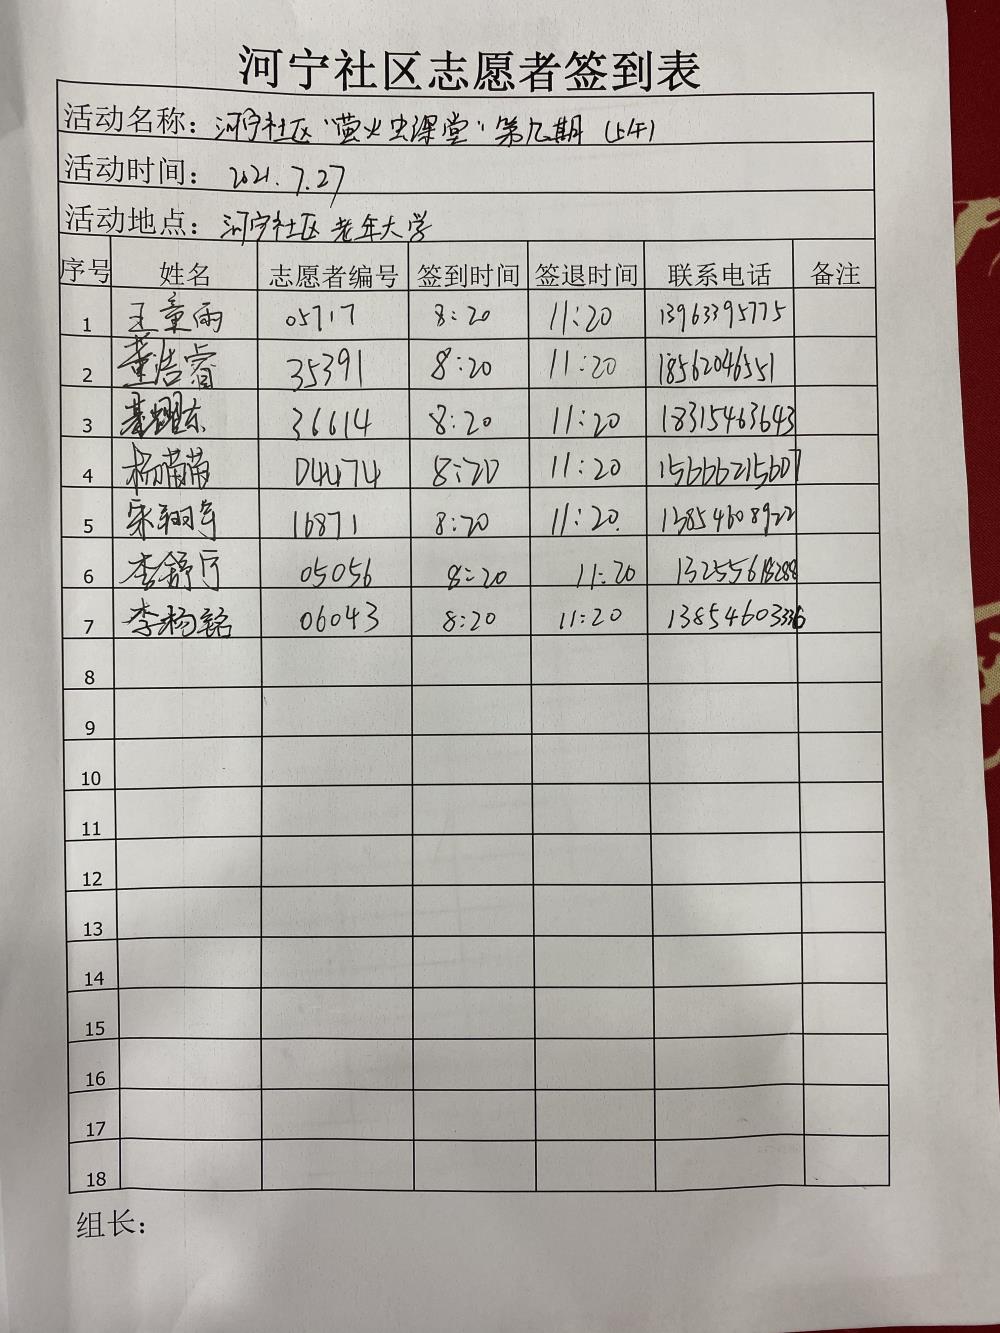 河宁社区志愿者签到表
活动名称：河宁社区“萤火虫课堂”第九期（上午）
活动时间：2021.7.27
活动地点：河宁社区老年大学
序号 姓名 志愿者编号 签到时间 签退时间 联系电话 备注
1 王童雨 05717 8:20 11:20 13963395775
2 董浩睿 35391 8:20 11:20 18562046551
3 36614 8:20 11:20 18315463643
4 杨苗苗 04474 8:20 11:20 15666215607
5 16871 8:20 11:20 13854608922
6 李舒宁 05056 8:20 11:20 13255618288
7 李杨铭 06043 8:20 11:20 13854603336
8
9
10
11
12
13
14
15
16
17
18
组长：